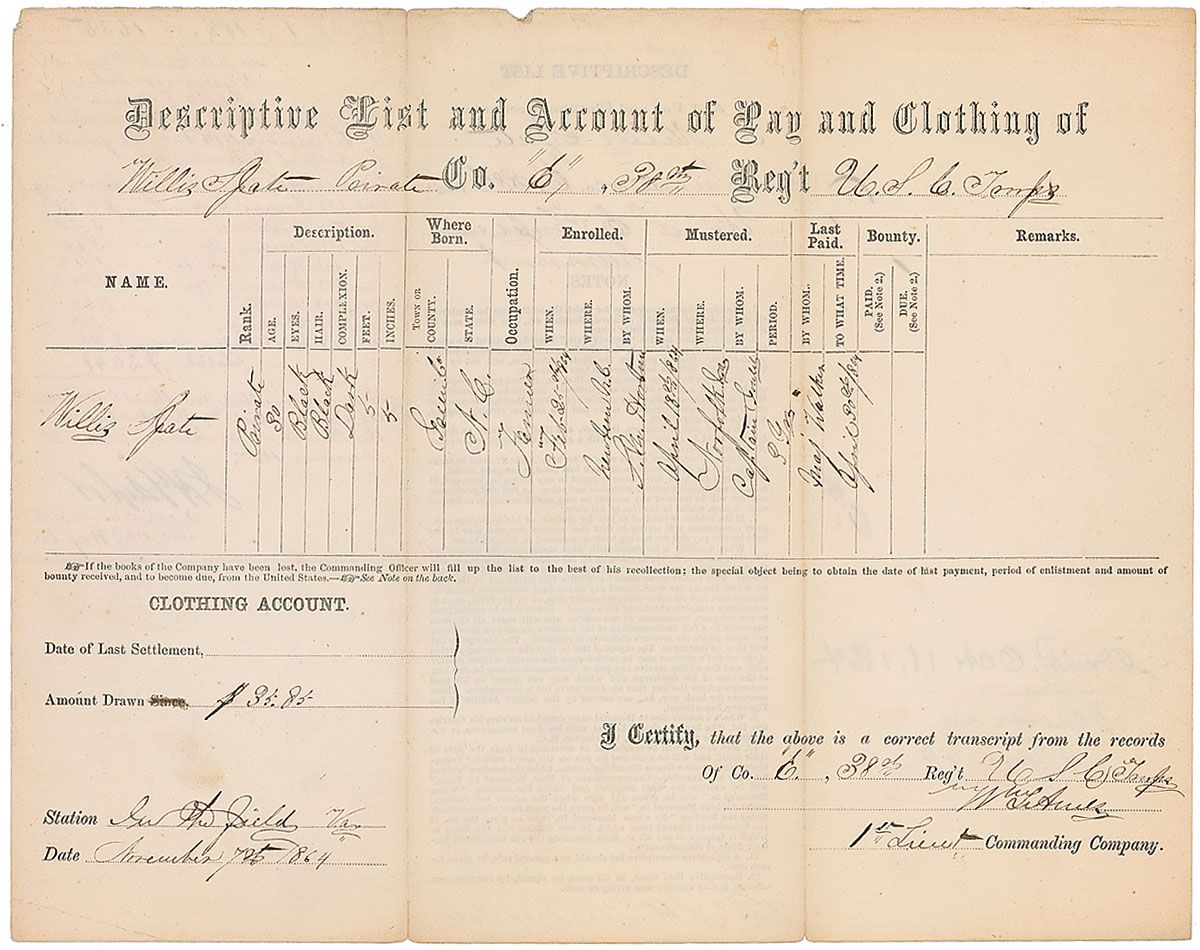 Descriptive List and Account of Pay and Clothing of
Willis Spate Private Co. "E", 38th Reg't U. S. C. Troops
NAME.
Rank.
Description.
AGE.
EYES.
HAIR.
COMPLEXION.
FEET.
INCHES.
Where Born.
TOWN OR COUNTY.
STATE.
Occupation.
Enrolled.
WHEN.
WHERE.
BY WHOM.
Mustered.
WHEN.
WHERE.
BY WHOM.
PERIOD.
Last Paid.
BY WHOM.
TO WHAT TIME.
Bounty.
PAID. (See Note 2.)
DUE. (See Note 2.)
Remarks.
Willis Spate
Private
30
Black
Black
Dark
5
5
N. C.
Farmer
Newbern N.C.
April 18th/64
Norfolk Va
Captain
3 Yrs
Maj Walker
April 30th/64
If the books of the Company have been lost, the Commanding Officer will fill up the list to the best of his recollection; the special object being to obtain the date of last payment, period of enlistment and amount of
bounty received, and to become due, from the United States.—See Note on the back.
CLOTHING ACCOUNT.
Date of Last Settlement,
Amount Drawn Since, $ 35.85
I Certify, that the above is a correct transcript from the records
Of Co. "E.", 38th Reg't U S C Troops
Station In the Field Va
Date November 7th 1864
1st Lieut Commanding Company.